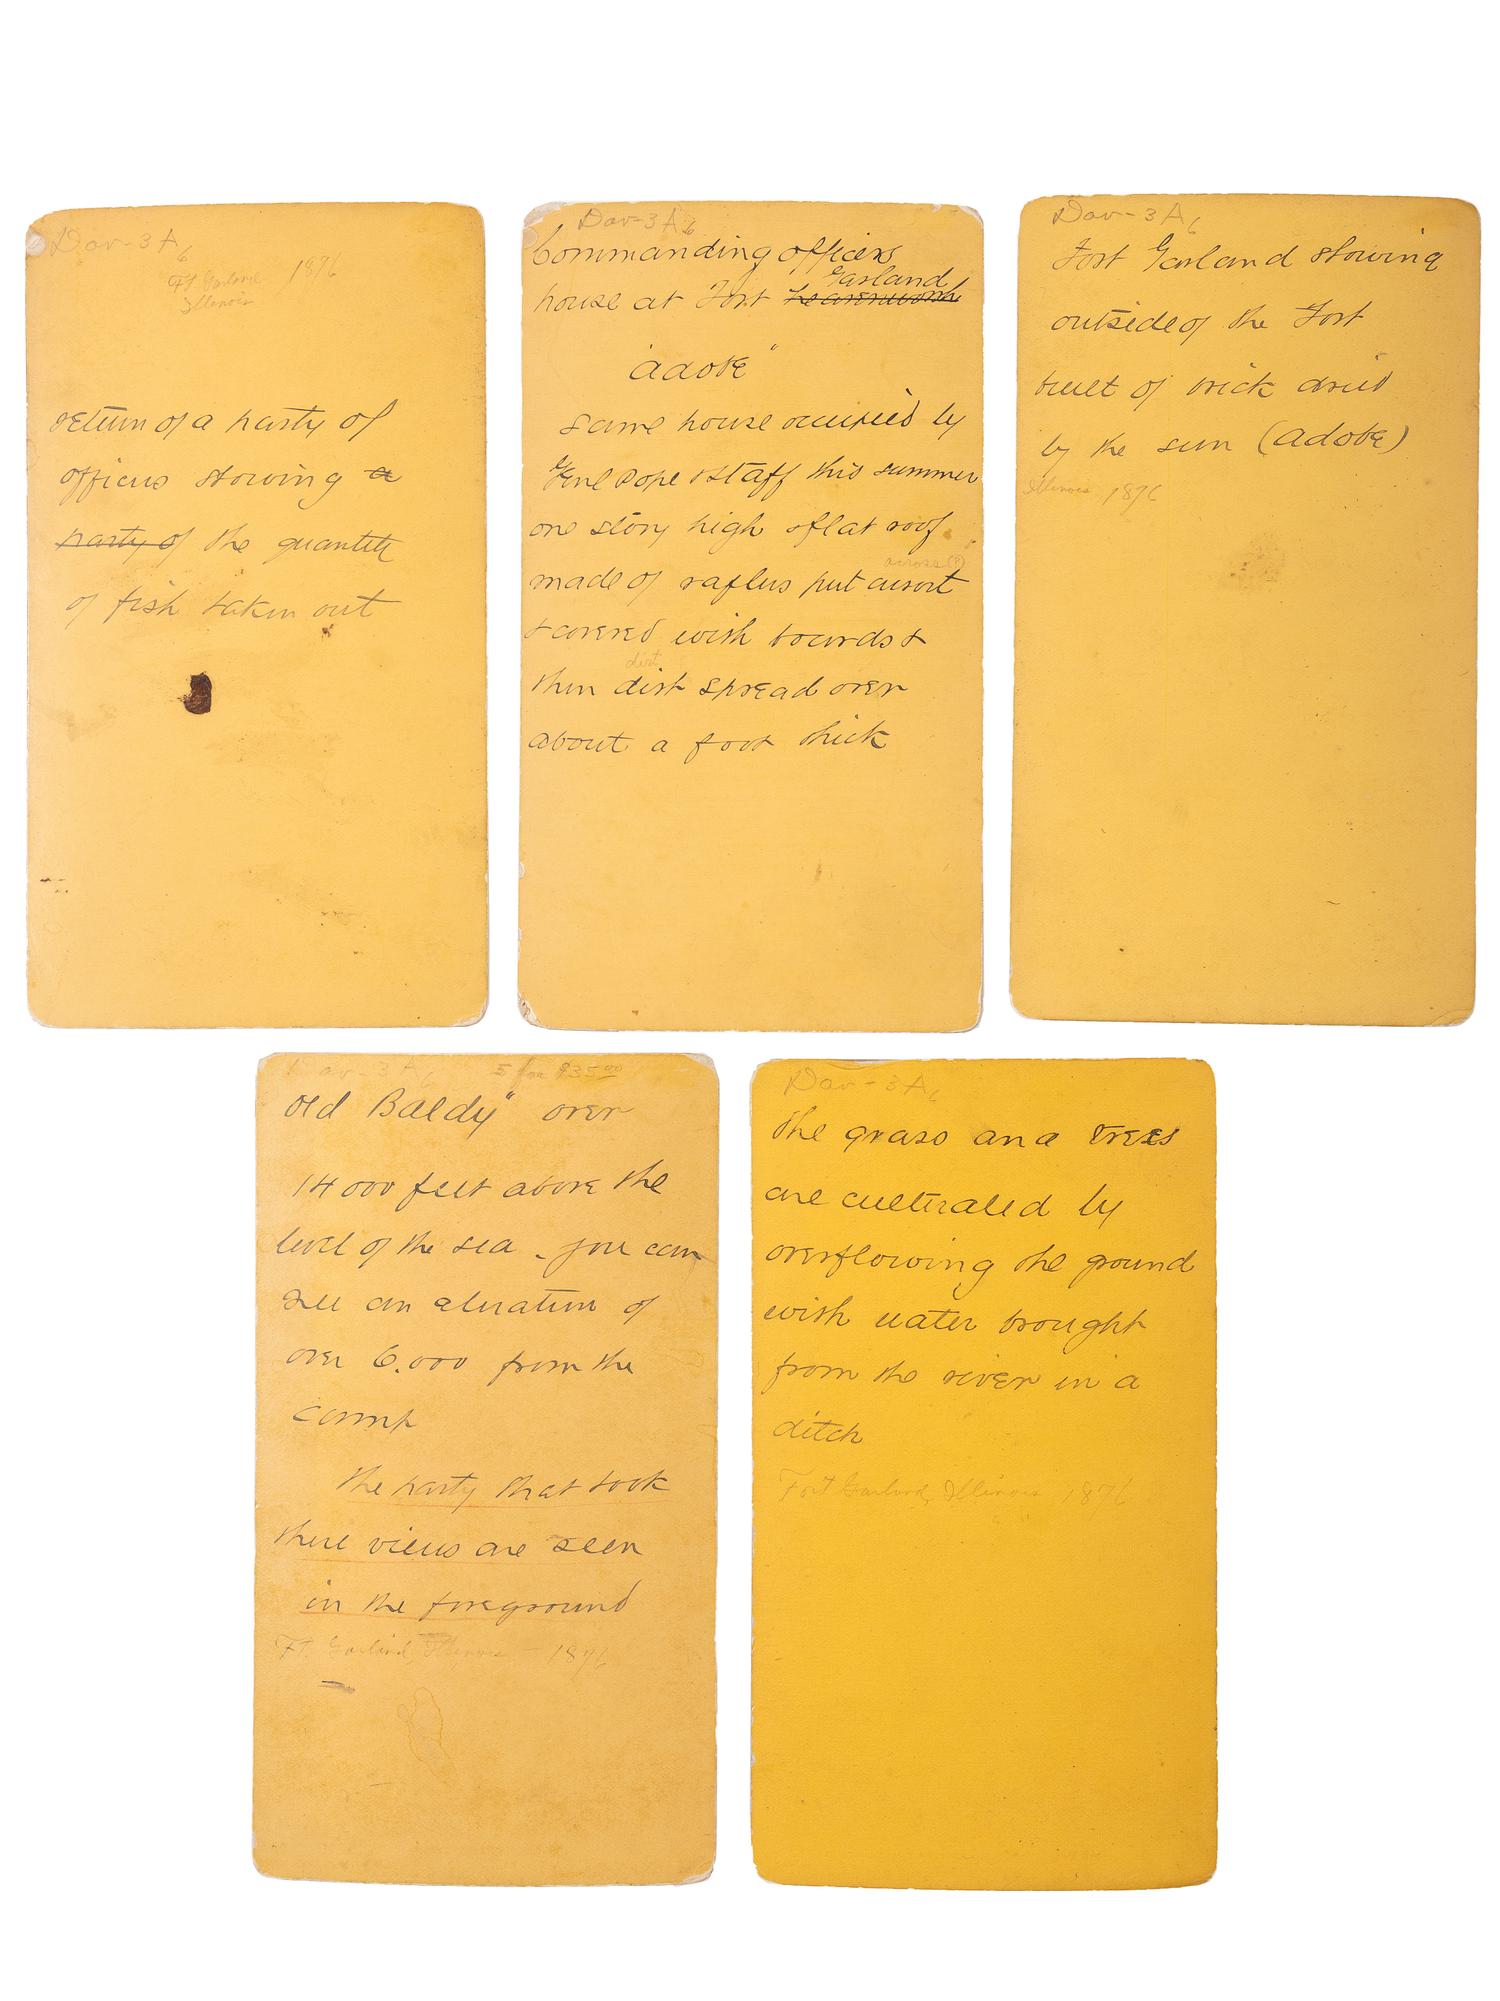 Dav-3A6
Ft Garland 1876
Illinois
return of a party of
officers showing a
party of the quantity
of fish taken out
Dav-3A6
Commanding officers
Garland
house at Fort Leavenworth
"adobe"
same house occupied by
Genl Pope & staff this summer
one story high & flat roof
across (?)
made of rafters put
& covered with boards &
dirt
then dirt spread over
about a foot thick
Dav-3A6
Fort Garland showing
outside of the Fort
built of brick dried
by the sun (adobe)
Illinois 1876
Dav-3A6 5 for $35.00
Old Baldy" over
14000 feet above the
level of the sea - you can
see an elevation of
over 6.000 from the
camp
The party that took
these views are seen
in the foreground
Ft. Garland, Illinois - 1876
Dav-3A6
The grass and trees
are cultivated by
overflowing the ground
with water brought
from the river in a
ditch
Fort Garland, Illinois 1876